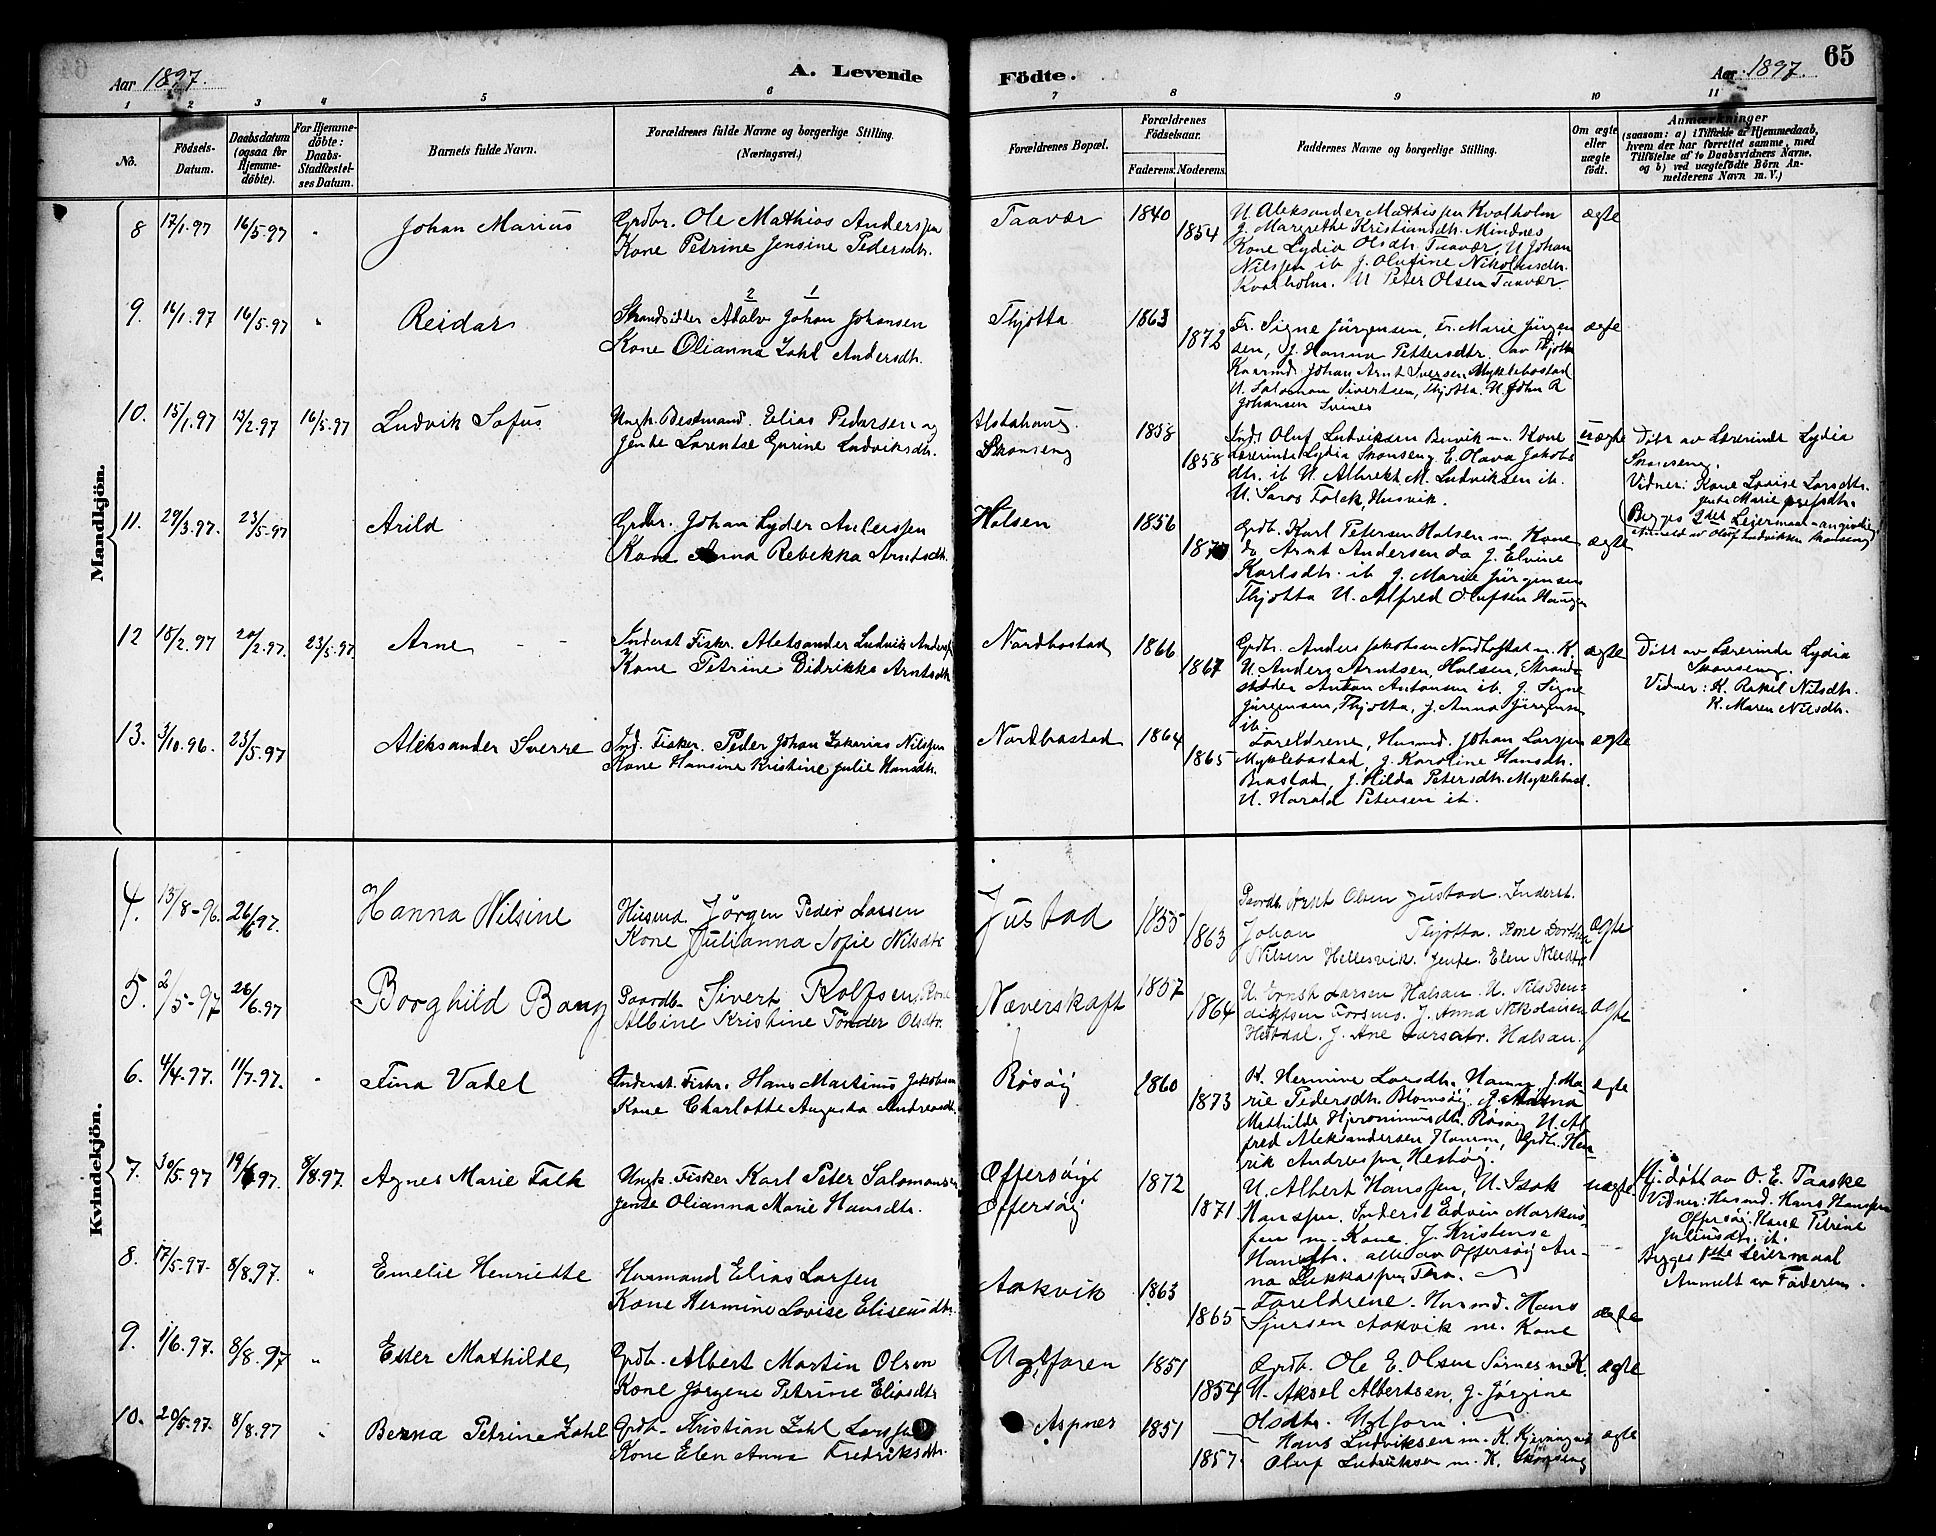 Aar 1897.
A. Levende
Födte.
Aar 1897.
65
1 2 3 4 5 6 7 8 9 10 11
No.
Födsels-
Datum.
Daabsdatum
(ogsaa for
Hjemme-
döbte).
For Hjemme-
döbte:
Daabs-
Stadfæstel-
ses Datum.
Barnets fulde Navn.
Forældrenes fulde Navne og borgerlige Stilling.
(Næringsvei.)
Forældrenes Bopæl.
Forældrenes
Födselsaar.
Faderens. Moderens.
Faddernes Navne og borgerlige Stilling.
Om ægte
eller
uægte
födt.
Anmærkninger
(saasom: a) i Tilfælde af Hjemmedaab,
hvem der har forrettet samme, med
Tilföielse af to Daabsvidners Navne,
og b) ved uægtefödte Börn An-
melderens Navn m. V.)
Mandkjön.
8 17/1.97 16/5.97 " Johan Marius
Grdbr. Ole Mathias Anderssen
Kone Petrine Jensine Pedersdtr.
Taavær 1840 1854
U. Aleksander Mathissen Kvalholm
J. Margrethe Kristiansdtr. Mindnes
Kone Lydia Olsdtr. Taavær, U Johan
Nilssen ib. J. Olufine Nikolaisdtr.
Kvalholm. U Peter Olsen Taavær.
ægte
9. 14/1.97 16/5.97 " Reidar
2 1
Strandsidder Adolv Johan Johansen
Kone Olianna Zahl Andersdtr.
Thjotta 1863 1872
Fr. Signe Jürgensen, Fr. Marie Jürgen
sen, J. Hanna Pettersdtr. av Thjotta
Johan Arnt Iversen Myklebostad
U. Salomon Sivertsen, Thjotta. U. John R
Johansen Svines
ægte
10. 15/1.97 13/2.97 16/5.97 Ludvik Sofus
Ungk. Bestmand. Elias Pedersen og
Jente Lorentse Gurine Ludviksdtr.
Alstahoug
Skonseng
1858 1858
Inds Oluf Ludviksen Buvik m. Kone
Lærerinde Lydia Skonseng E. Olava Jakobs
dtr. ib U. Albrekt M. Ludviksen ib.
U. Falck, Husvik.
uægte
Døbt av Lærerinde Lydia
Skonseng.
Vidner: Kone Lovise Larsdtr.
Jente Marie
Begges 2det Leiermaal angivelig
Anmeld av Oluf Ludviksen Skonseng
11. 29/3.97. 23/5.97 Arild
Grdbr. Johan Lyder Anderssen
Kone Anna Rebekka Arntsdtr.
Halsen 1856
Grdb. Karl Petersen Halsen m. Kone
do Arnt Andersen do J. Elvine
Karlsdtr. ib J. Marie Jürgensen
Thjotta U. Alfred Olufsen Haugen
ægte
12 18/2.97 20/2.97. 23/5.97. Arne
Inderst Fiskr. Aleksander Ludvik Anderss
Kone Petrine Didrikke Arntsdtr.
Nordbostad 1866 1867
Grdbr. Anders Jakobsen Nordbostad m. K.
U. Anders Arntsen, Halsen, Strand-
sidder Anton Antonsen ib. J. Signe
Jürgensen, Thjotta, J. Anna Jürgensen
ib.
ægte
Døbt av Lærerinde Lydia
Skonseng.
Vidner: K. Rakel Nilsdtr.
K. Maren Nilsdtr.
13. 3/10.96. 23/5.97 Aleksander Sverre
Ind. Fisker. Peder Johan Zakarias Nilssen
Kone Hansine Kristine Julie Hansdtr.
Nordbostad 1864 1865
Foreldrene, Husmd. Johan Larssen
Myklebostad, J. Karoline Hansdtr.
Brastad, J. Hilda Petersdtr. Myklebost.
U. Harald Petersen ib.
ægte
Kvindekjön.
4. 13/8-96. 26/6 97. Hanna Nilsine
Husmd. Jørgen Peder Lassen
Kone Julianna Sofie Nilsdtr
Justad 1855 1863
Gaardb. Arnt Olsen Justad. Inderst.
Johan Thjotta. Kone Dorthea
Nilsen Hellesvik. Jente. Elen Nilsdtr
ægte
5. 2/5-97 26/6.97 Borghild Bang
Gaardb. Sivert Rolfsen, Kone
Albine Kristine Tønder Olsdtr.
Næverskaft 1857 1864
U. Ernst Larsen Halsan. U. Nils Ben-
diktsen Forsmo. J. Anna Nikolaisen
Hestdal. J. Ane Larsdtr. Halsan.
ægte
6. 4/4-97. 11/7.97. " Fina Vadel
Inderst. Fiskr. Hans Martinus Jakobsen
Kone Charlotte Augusta Andreasdtr.
Rösöy 1860 1873
K. Hermine Larsdtr. Hamn, J. Ma-
rie Pedersdtr. Blomsöy, J.
Mathilde Hjeronimusdtr. Rösöy U. Al
fred Aleksandersen Hamn, Grdb. Hen
rik Andreassen, Hestöy.
ægte
7. 30/5.97 19/6 97. 8/8.97. Agnes Marie Falk
Ungk. Fisker Karl Peter Salomonsen
Jente Olianna Marie Hansdtr.
Offersöy
Offersöy
1872 1871
U. Albert Hanssen, U. Isak
Hanssen. Inderst Edvin Markus-
sen m. Kone. J. Kristense
Hansdtr. alle av Offersöy An-
na Lukkassen Tro.
uægte
Hj. døbt av O. E. Taaske
Vidner: Husmd. Hans Hanssen
Offersöy. Kone Petrine
Juliusdtr. ib.
Begges 1ste Leiermaal
Anmelt av Faderen.
8. 17/5.97. 8/8.97. " Emelie Henriette
Husmand Elias Larsen
Kone Hermine Lovise Eliseusdtr.
Aakvik 1863 1865
Foreldrene. Husmd. Hans
Sjursen Aakvik m. Kone
ægte
9. 1/6.97. 8/8 97 " Ester Mathilde
Grdb. Albert Martin Olsen
Kone Jørgene Petrine Eliasdtr
1851 1854
Grdb. Ole E. Olsen Sörnes m. K.
U. Aksel Albertsen, J. Jørgine
Olsdtr.
ægte
10. 20/5.97. 8/8.97 " Berna Petrine Zahl
Grdb. Kristian Zahl Larssen
Kone Elen Anna Fredriksdtr.
Aspnes 1851 1857
Hans Ludviksen m. K.
Oluf Ludviksen m. K. Skonseng
ægte